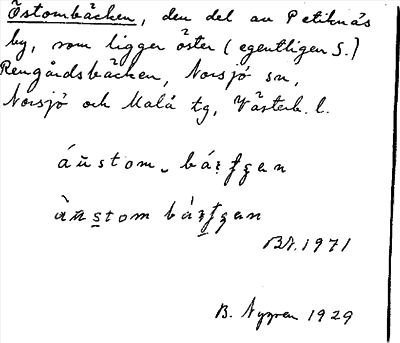 Östombäcken, den del av Petiknäs
by, som ligger öster (egentligen S.)
Rengårdsbäcken, Norsjö sn,
Norsjö och Malå tg, Västerb. l.
áustom
àustom
1971
B. Nygren 1929